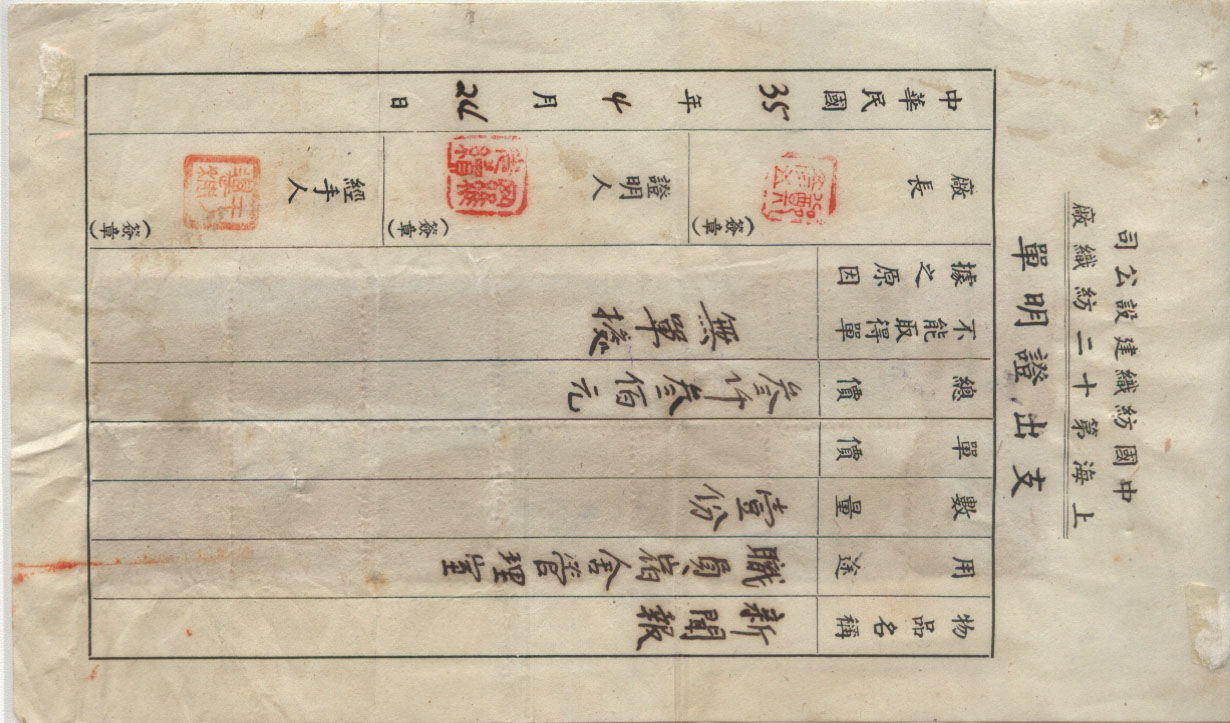 中國紡織建設公司
上海第十二紡織廠
支出證明單
物品名稱
新聞報
用途
職員宿舍管理室
數量
壹份
單價
總價
叁仟叁佰元
不能取得單據之原因
無單據
廠長
(簽章)
證明人
(簽章)
經手人
(簽章)
中華民國35年4月24日